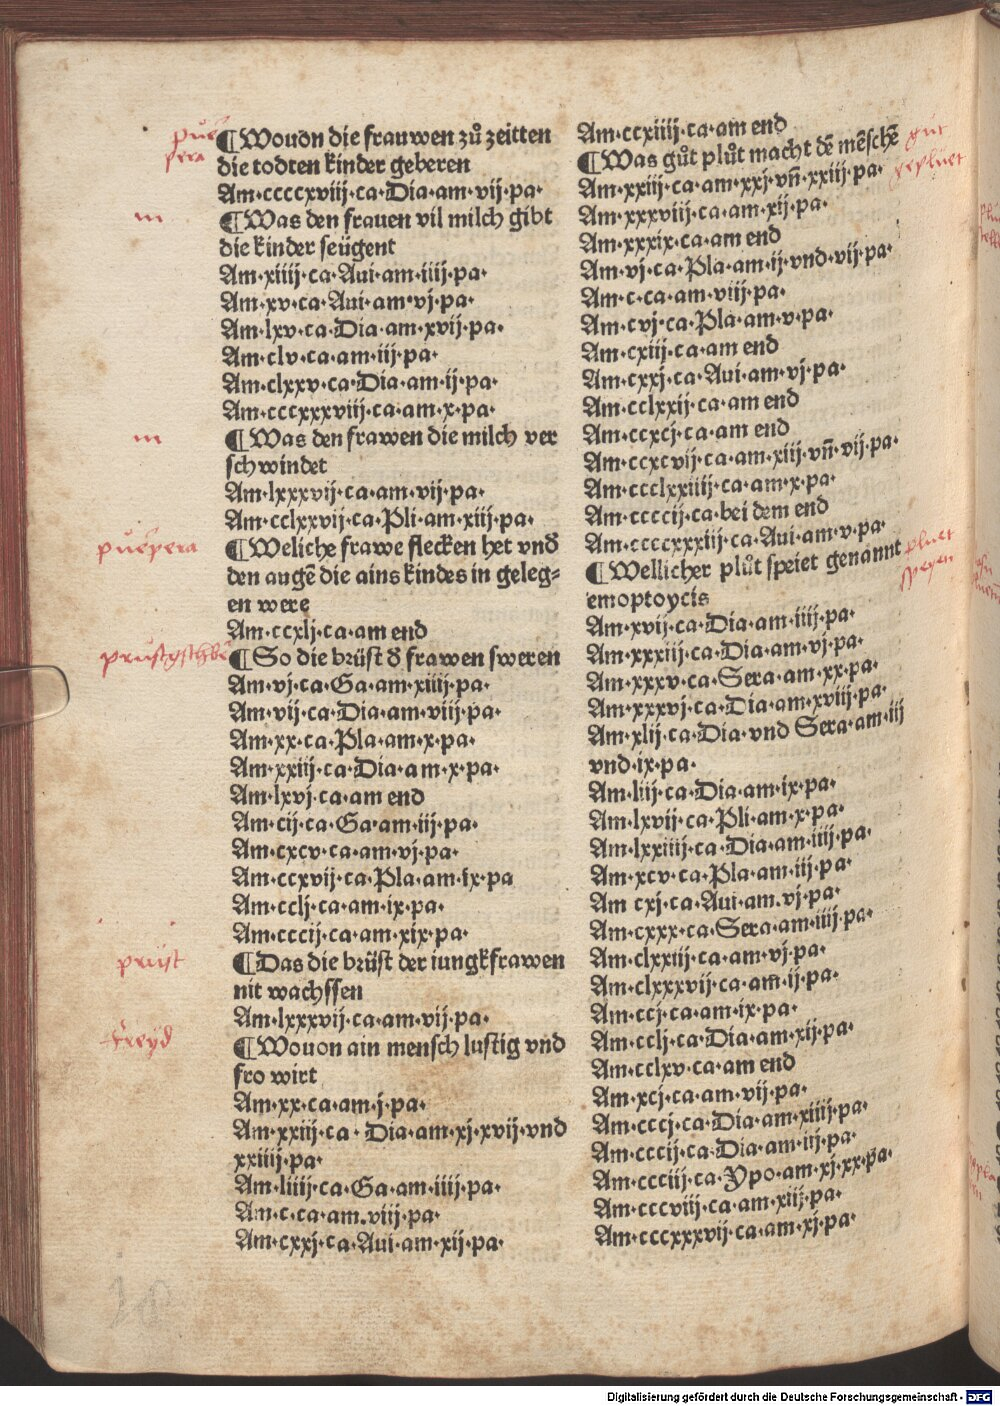 ¶Wouon die frauwen zů zeitten
die todten kinder geberen
Am·ccccxviij·ca·Dia·am·vij·pa·
¶Was den frauen vil milch gibt
die kinder seügent
Am·xiiij·ca·Aui·am·iiij·pa·
Am·xv·ca·Aui·am·vj·pa·
Am·lxv·ca·Dia·am·xvij·pa·
Am·clv·ca·am·iij·pa·
Am·clxxv·ca·Dia·am·ij·pa·
Am·cccxxxviij·ca·am·x·pa·
¶Was den frawen die milch ver
schwindet
Am·lxxxvij·ca·am·vij·pa·
Am·cclxxvij·ca·Pli·am·xiij·pa·
¶Weliche frawe flecken het vnd
den augē die ains kindes in geleg⸗
en were
Am·ccxlj·ca·am end
¶So die brüst d̕ frawen sweren
Am·vj·ca·Ga·am·xiiij·pa·
Am·vij·ca·Dia·am·viij·pa·
Am·xx·ca·Pla·am·x·pa·
Am·xxiij·ca·Dia·am·x·pa·
Am·lxvj·ca·am end
Am·cij·ca·Ga·am·iij·pa·
Am·cxcv·ca·am·vj·pa·
Am·ccxvij·ca·Pla·am·ix·pa
Am·cclj·ca·am·ix·pa·
Am·cccij·ca·am·xix·pa·
¶Das die brüst der iungkfrawen
nit wachssen
Am·lxxxvij·ca·am·vij·pa·
¶Wouon ain mensch lustig vnd
fro wirt
Am·xx·ca·am·j·pa·
Am·xxiij·ca·Dia·am·xj·xvij·vnd
xxiiij·pa·
Am·liiij·ca·Ga·am·iiij·pa·
Am·c·ca·am·viij·pa·
Am·cxxj·ca·Aui·am·xij·pa·
Am·ccxiiij·ca·am end
¶Was gůt plůt macht dē mēschē
Am·xxiij·ca·am·xxj·vn̄·xxiij·pa·
Am·xxxviij·ca·am·xij·pa·
Am·xxxix·ca·am end
Am·vj·ca·Pla·am·ij·vnd·vij·pa·
Am·c·ca·am·viij·pa·
Am·cvj·ca·Pla·am·v·pa·
Am·cxiij·ca·am end
Am·cxxj·ca·Aui·am·vj·pa·
Am·cclxxij·ca·am end
Am·ccxcj·ca·am end
Am·ccxcvij·ca·am·xiij·vn̄·vij·pa·
Am·ccclxxiiij·ca·am·x·pa·
Am·ccccij·ca·bei dem end
Am·ccccxxxiij·ca·Aui·am·v·pa·
¶Wellicher plůt speiet genannt
emoptoycis
Am·xvij·ca·Dia·am·iiij·pa·
Am·xxxiij·ca·Dia·am·vj·pa·
Am·xxxv·ca·Sera·am·xx·pa·
Am·xxxvj·ca·Dia·am·xviij·pa·
Am·xlij·ca·Dia·vnd Sera·am·iij
vnd·ix·pa·
Am·liij·ca·Dia·am·ix·pa·
Am·lxvij·ca·Pli·am·x·pa·
Am·lxxiiij·ca·Dia·am·iiij·pa·
Am·xcv·ca·Pla·am·iij·pa·
Am cxj·ca·Aui·am·vj·pa·
Am·cxxx·ca·Sera·am·iiij·pa·
Am·clxxiij·ca·am·vj·pa·
Am·clxxxvij·ca·am̄·ij·pa·
Am·ccj·ca·am·ix·pa·
Am·cclj·ca·Dia·am·xij·pa·
Am·cclxv·ca·am end
Am·xcj·ca·am·vij·pa·
Am·cccj·ca·Dia·am·xiiij·pa·
Am·cccij·ca·Dia·am·iij·pa·
Am·ccciij·ca·Ypo·am·xj·xx·pa·
Am·cccviij·ca·am·xiij·pa·
Am·cccxxxvij·ca·am·xj·pa·
m
m
puērpera
prüst
freyd
gut
geplüet
plüet
speyen
Digitalisierung gefördert durch die Deutsche Forschungsgemeinschaft - DFG